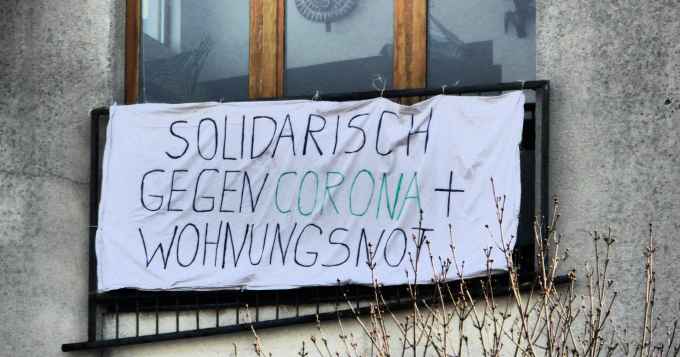 SOLIDARISCH
GEGEN CORONA +
WOHNUNGSNOT